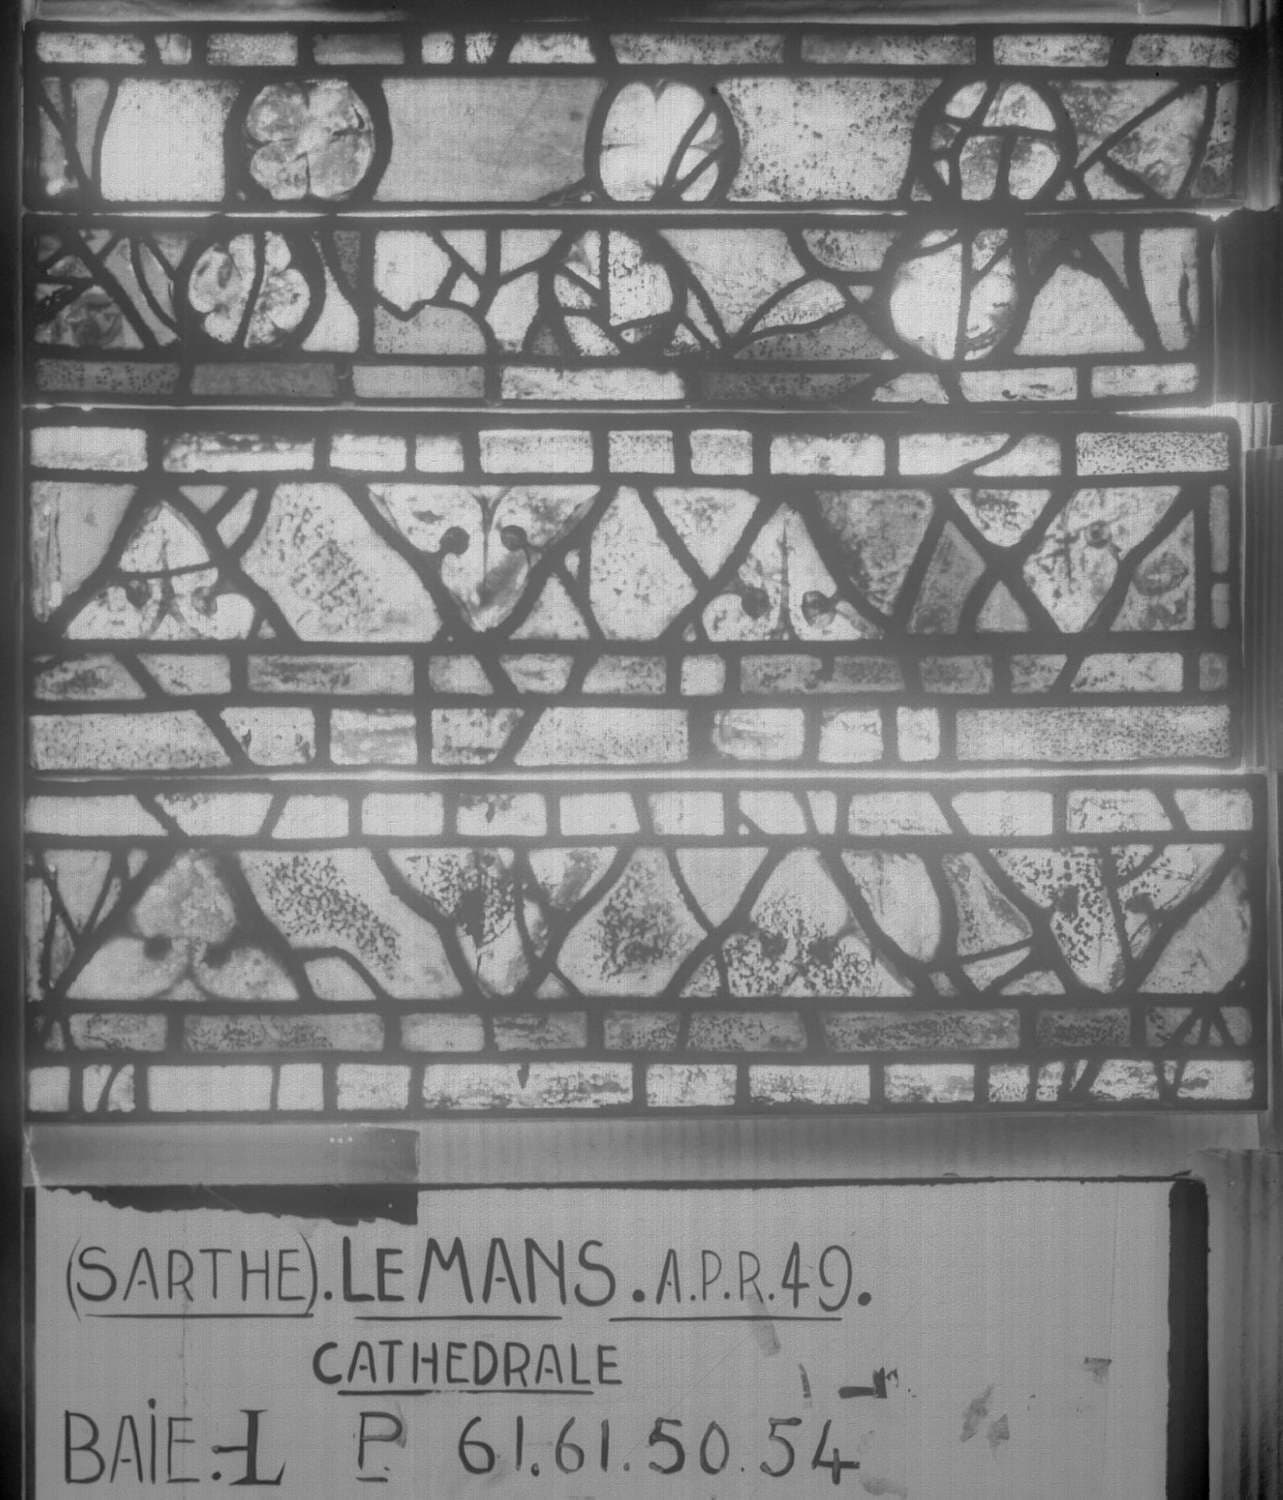 (SARTHE). LE MANS. A.P.R. 49.
CATHEDRALE
BAiE. L P 61.61.50.54